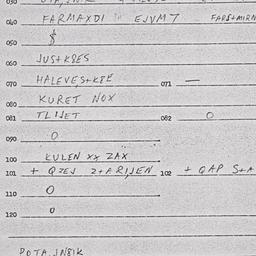 040 FARMAXDI EJVM7
050 $
060 JUS+K8ES
070 HALEVES+K8E 071 —
080 KURET NOX
081 TLIJET 082 O
090 O
100 KULEN XX ZAX
101 + QZEJ Z+ARIJEN 102 + QAP S+A
110 O
120 O